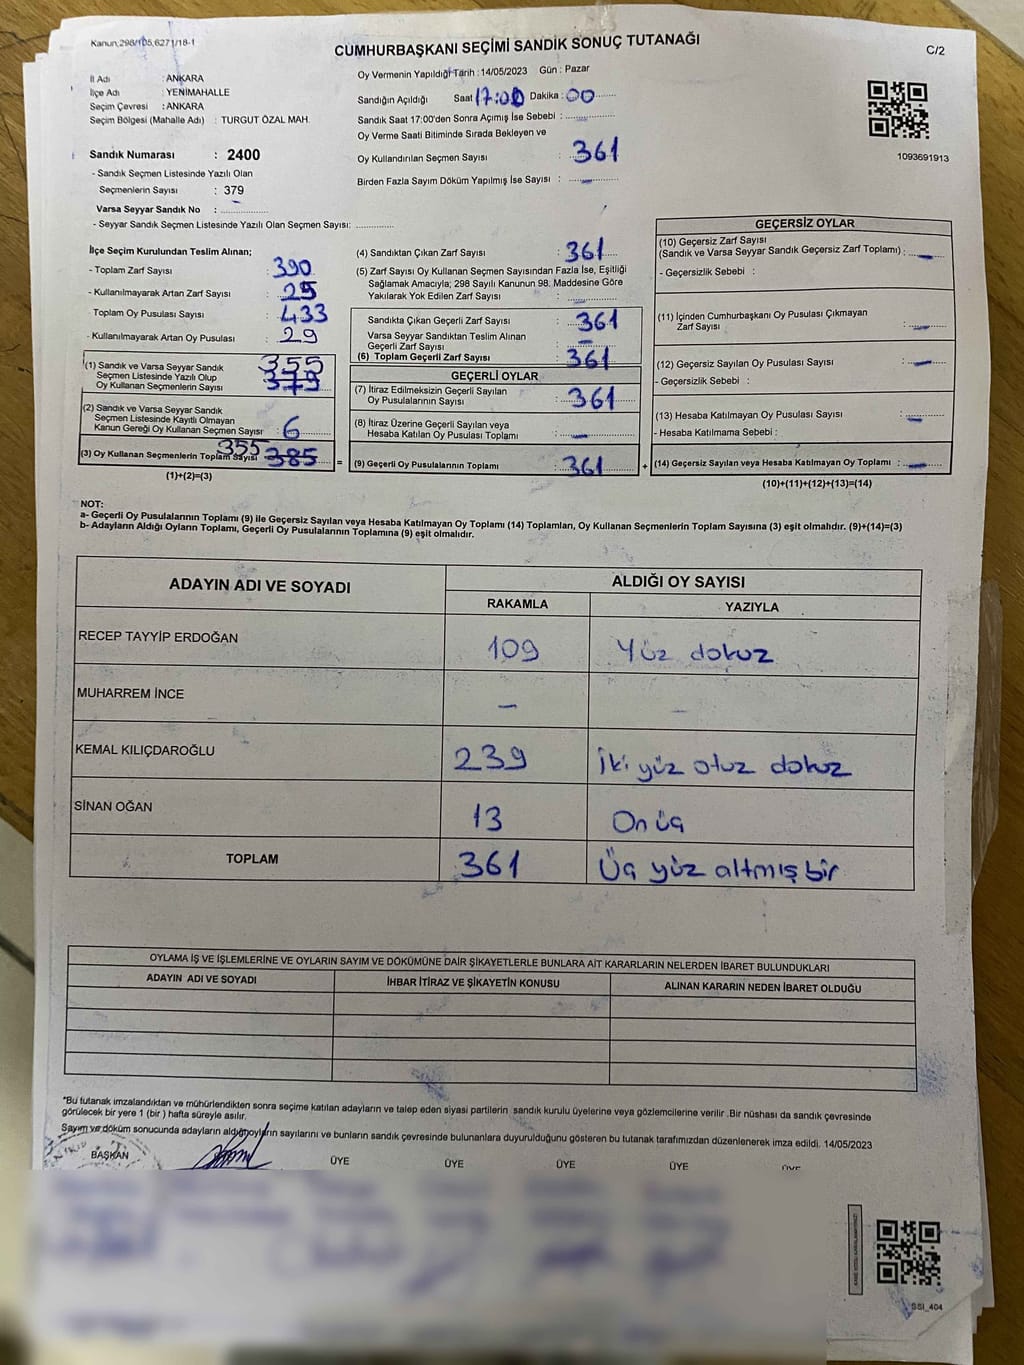 Kanun,298/105,6271/18-1
CUMHURBAŞKANI SEÇİMİ SANDIK SONUÇ TUTANAĞI
C/2
İl Adı : ANKARA
İlçe Adı : YENİMAHALLE
Seçim Çevresi : ANKARA
Seçim Bölgesi (Mahalle Adı) : TURGUT ÖZAL MAH.
Sandık Numarası : 2400
- Sandık Seçmen Listesinde Yazılı Olan
Seçmenlerin Sayısı : 379
Varsa Seyyar Sandık No :
- Seyyar Sandık Seçmen Listesinde Yazılı Olan Seçmen Sayısı:
Oy Vermenin Yapıldığı Tarih : 14/05/2023 Gün : Pazar
Sandığın Açıldığı Saat 17:00 Dakika : 00
Sandık Saat 17:00'den Sonra Açımış İse Sebebi :
Oy Verme Saati Bitiminde Sırada Bekleyen ve
Oy Kullandırılan Seçmen Sayısı : 361
Birden Fazla Sayım Döküm Yapılmış İse Sayısı : -
1093691913
İlçe Seçim Kurulundan Teslim Alınan;
- Toplam Zarf Sayısı : 390
- Kullanılmayarak Artan Zarf Sayısı : 25
- Toplam Oy Pusulası Sayısı : 433
- Kullanılmayarak Artan Oy Pusulası : 29
(1) Sandık ve Varsa Seyyar Sandık 355
Seçmen Listesinde Yazılı Olup 379
Oy Kullanan Seçmenlerin Sayısı
(2) Sandık ve Varsa Seyyar Sandık
Seçmen Listesinde Kayıtlı Olmayan
Kanun Gereği Oy Kullanan Seçmen Sayısı : 6
(3) Oy Kullanan Seçmenlerin Toplam Sayısı 355 385
(1)+(2)=(3)
(4) Sandıktan Çıkan Zarf Sayısı : 361
(5) Zarf Sayısı Oy Kullanan Seçmen Sayısından Fazla İse, Eşitliği
Sağlamak Amacıyla; 298 Sayılı Kanunun 98. Maddesine Göre
Yakılarak Yok Edilen Zarf Sayısı : -
Sandıkta Çıkan Geçerli Zarf Sayısı : 361
Varsa Seyyar Sandıktan Teslim Alınan
Geçerli Zarf Sayısı : -
(6) Toplam Geçerli Zarf Sayısı : 361
GEÇERLİ OYLAR
(7) İtiraz Edilmeksizin Geçerli Sayılan
Oy Pusulalarının Sayısı : 361
(8) İtiraz Üzerine Geçerli Sayılan veya
Hesaba Katılan Oy Pusulası Toplamı : -
= (9) Geçerli Oy Pusulalarının Toplamı : 361
GEÇERSİZ OYLAR
(10) Geçersiz Zarf Sayısı
(Sandık ve Varsa Seyyar Sandık Geçersiz Zarf Toplamı) : -
- Geçersizlik Sebebi :
(11) İçinden Cumhurbaşkanı Oy Pusulası Çıkmayan
Zarf Sayısı : -
(12) Geçersiz Sayılan Oy Pusulası Sayısı : -
- Geçersizlik Sebebi :
(13) Hesaba Katılmayan Oy Pusulası Sayısı : -
- Hesaba Katılmama Sebebi :
+ (14) Geçersiz Sayılan veya Hesaba Katılmayan Oy Toplamı : -
(10)+(11)+(12)+(13)=(14)
NOT:
a- Geçerli Oy Pusulalarının Toplamı (9) ile Geçersiz Sayılan veya Hesaba Katılmayan Oy Toplamı (14) Toplamları, Oy Kullanan Seçmenlerin Toplam Sayısına (3) eşit olmalıdır. (9)+(14)=(3)
b- Adayların Aldığı Oyların Toplamı, Geçerli Oy Pusulalarının Toplamına (9) eşit olmalıdır.
ADAYIN ADI VE SOYADI ALDIĞI OY SAYISI
RAKAMLA YAZIYLA
RECEP TAYYİP ERDOĞAN 109 Yüz dokuz
MUHARREM İNCE - -
KEMAL KILIÇDAROĞLU 239 İki yüz otuz dokuz
SİNAN OĞAN 13 On üç
TOPLAM 361 Üç yüz altmış bir
OYLAMA İŞ VE İŞLEMLERİNE VE OYLARIN SAYIM VE DÖKÜMÜNE DAİR ŞİKAYETLERLE BUNLARA AİT KARARLARIN NELERDEN İBARET BULUNDUKLARI
ADAYIN ADI VE SOYADI İHBAR İTİRAZ VE ŞİKAYETİN KONUSU ALINAN KARARIN NEDEN İBARET OLDUĞU
*Bu tutanak imzalandıktan ve mühürlendikten sonra seçime katılan adayların ve talep eden siyasi partilerin sandık kurulu üyelerine veya gözlemcilerine verilir .Bir nüshası da sandık çevresinde
görülecek bir yere 1 (bir ) hafta süreyle asılır.
Sayım ve döküm sonucunda adayların aldığı oyların sayılarını ve bunların sandık çevresinde bulunanlara duyurulduğunu gösteren bu tutanak tarafımızdan düzenlenerek imza edildi. 14/05/2023
BAŞKAN ÜYE ÜYE ÜYE ÜYE ÜYE
SSİ_404